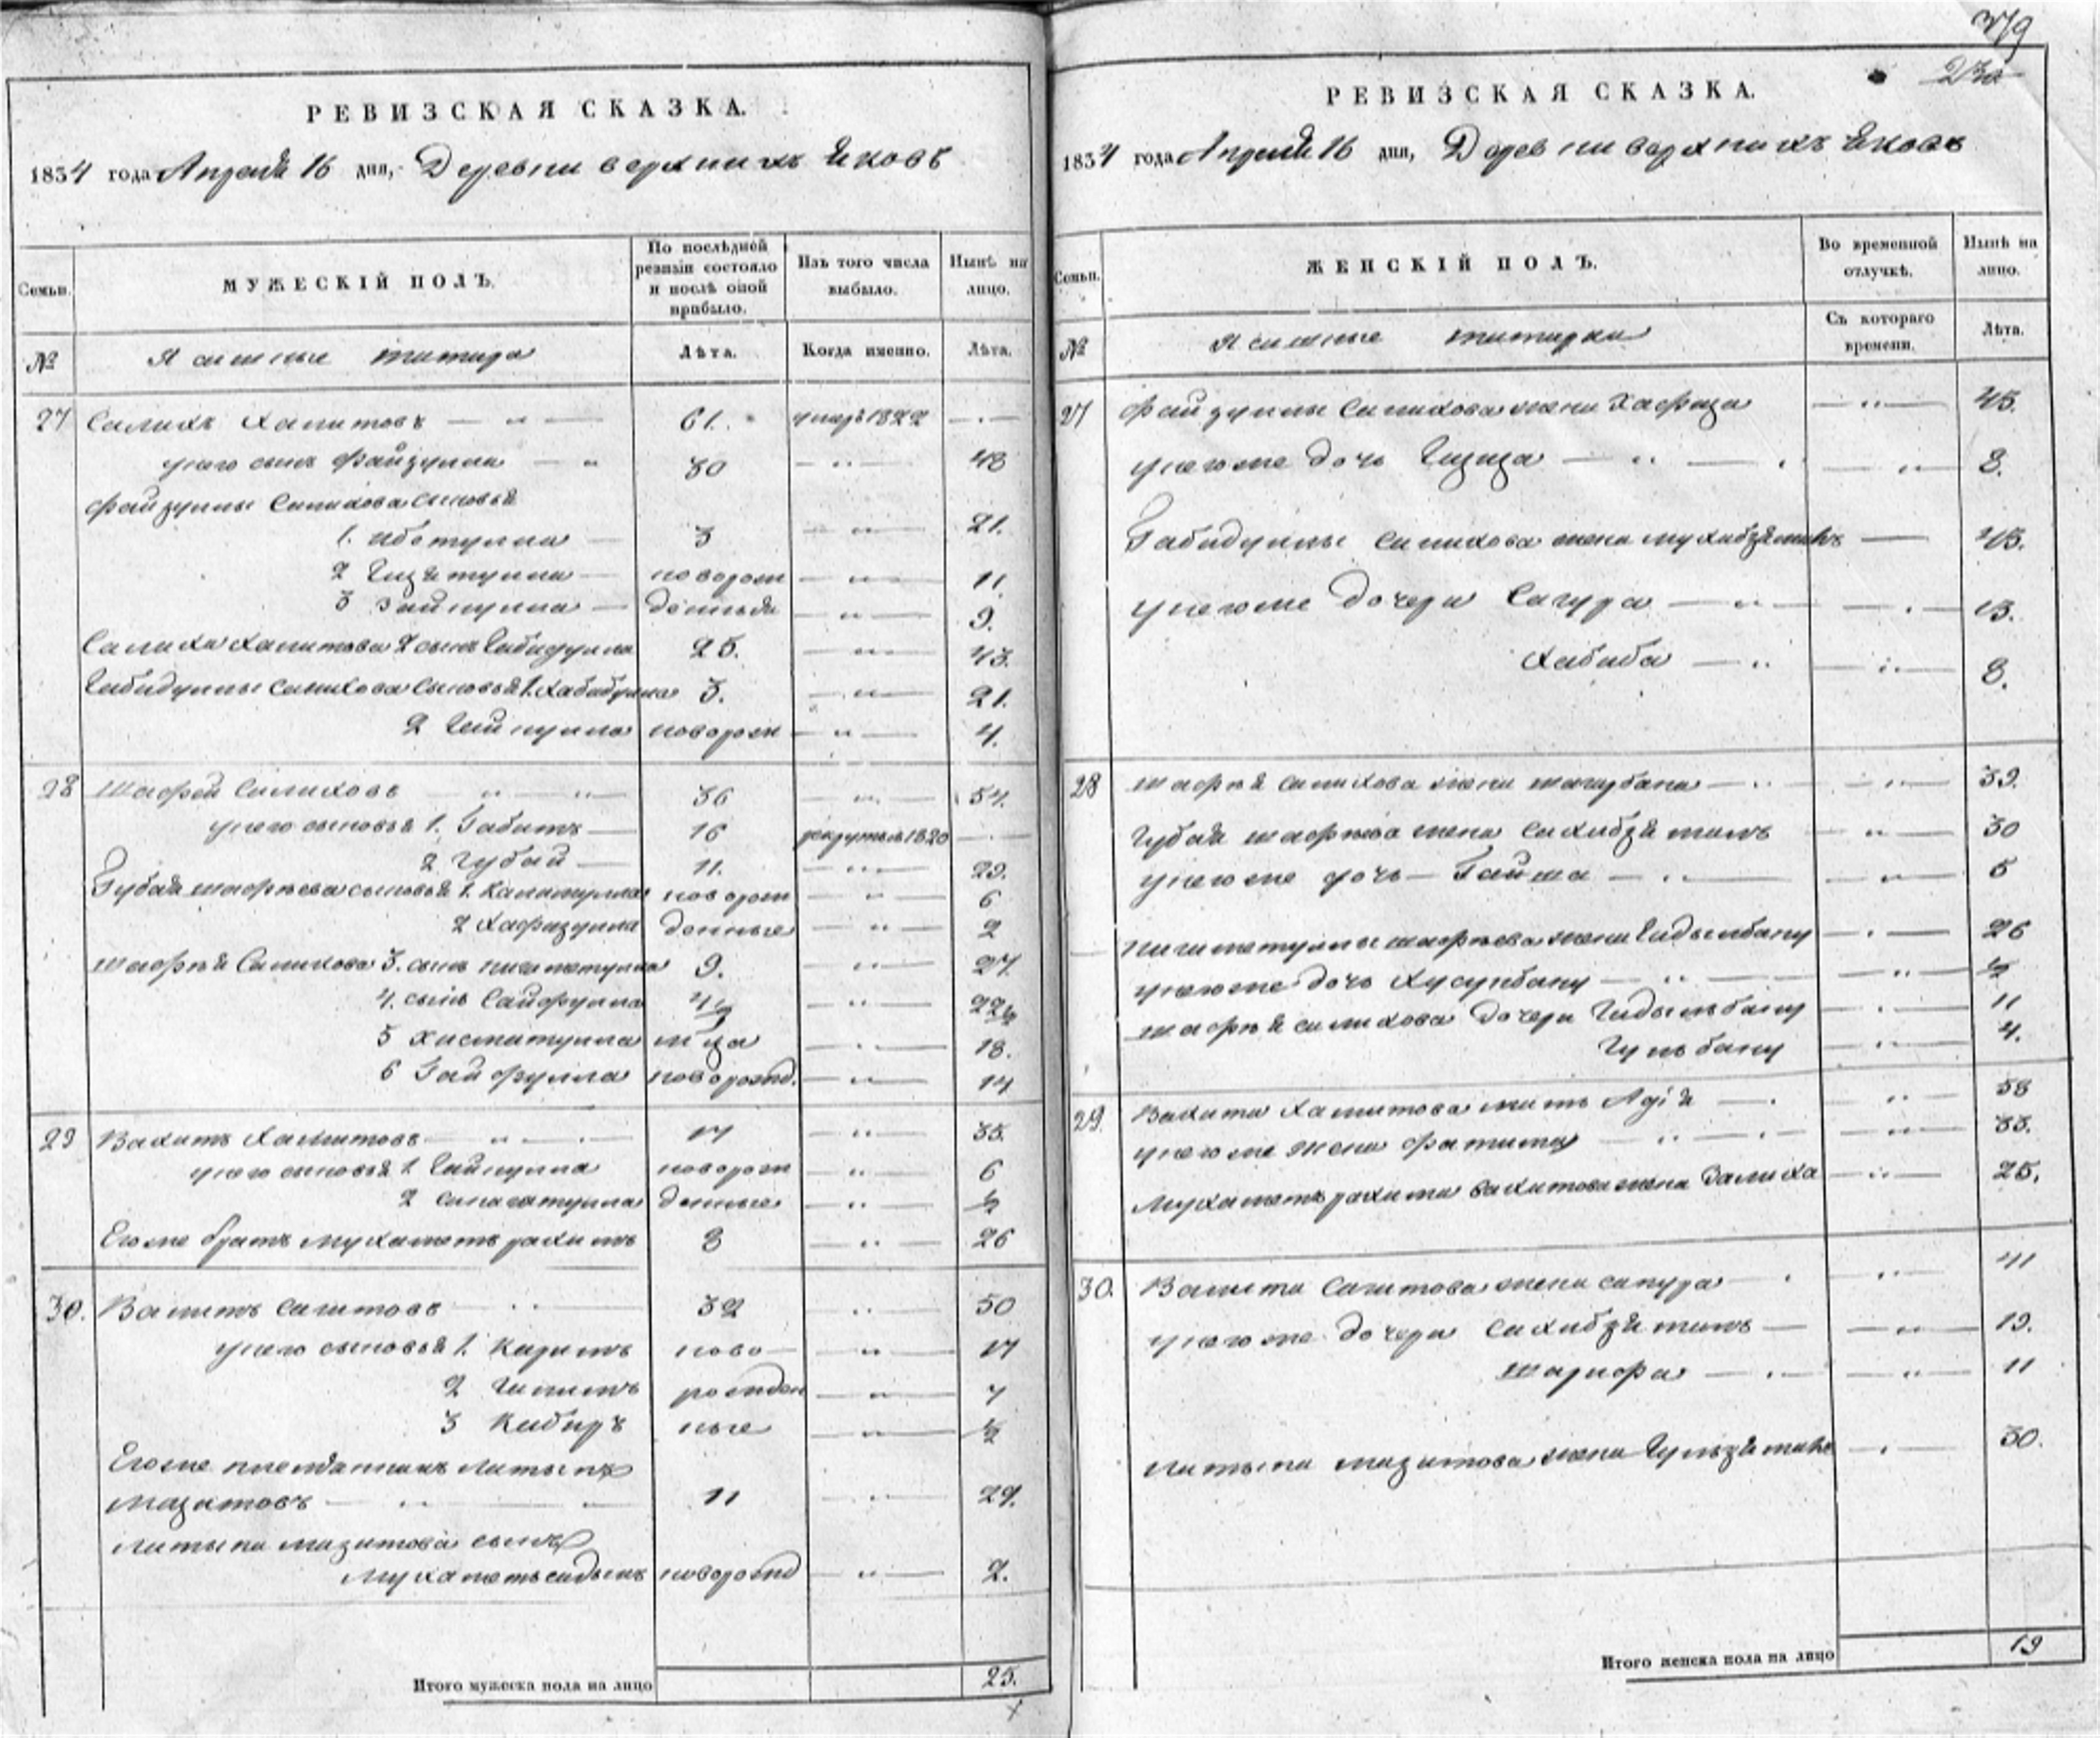 379
230
РЕВИЗСКАЯ СКАЗКА.
1834 года Апреля 16 дня, Деревни верхнихъ Яковъ
Семьи.
МУЖЕСКІЙ ПОЛЪ.
По послѣдней ревизіи состояло и послѣ оной прибыло.
Изъ того числа выбыло.
Нынѣ на лицо.
№
Ясашные татара
Лѣта.
Когда именно.
Лѣта.
27 Салихъ Халитовъ 61. умеръ 1822
у него сынъ Файзулла 30 48
Файзуллы Салихова сыновья
1. Ибетулла 3 21.
2 Гизятулла новорож 11.
3 Зайнулла денныя 9.
Салиха Халитова 2 сынъ Габидулла 25. 43.
Габидуллы Салихова сыновья 1. Хабибулла 3. 21.
2 Гайнулла новорож 4.
28 Шафей Салиховъ 36 54.
у него сыновья 1. Габитъ 16 рекрутъ въ 1820
2 Губай 11. 29.
Губая Шафѣева сыновья 1. Калимулла новорож 6
2 Хафизулла денные 2
Шафѣя Салихова 3. сынъ Нигаметулла 9. 27.
4. сынъ Сайфулла 4½ 22½
5 Хисматулла м ца 18.
6 Гайфулла новорожд. 14
29 Вахитъ Хамитовъ 17 35.
у него сыновья 1. Гайнулла новорож 6
2 денные ½
Его же братъ Мухаметърахимъ 8 26
30. Валитъ Сагитовъ 32 50
у него сыновья 1. Каримъ ново 17
2 Галимъ рожден 7
3 Кабиръ ные ½
Его же племянникъ Латыпъ
Мазитовъ 11 29.
Латыпа Мазитова сынъ
Мухаметьсадыкъ новорожд 2.
Итого мужеска пола на лицо 25.
РЕВИЗСКАЯ СКАЗКА.
1834 года Апреля 16 дня, Деревни верхнихъ Яковъ
Семьи.
ЖЕНСКІЙ ПОЛЪ.
Во временной отлучкѣ.
Нынѣ на лицо.
№
Ясашные татарки
Съ котораго времени.
Лѣта.
27 Файзуллы Салихова жена Хафиза 45.
у него же дочь Гизиза 8.
Габидуллы Салихова жена Мухибзямалъ 43.
у него же дочери Сагура 13.
Хабиба 8.
28 Шафѣя Салихова жена Магубана 39.
Губая Шафѣева жена Сахибзямалъ 30
у него же дочь Гайша 5
Нигаметуллы Шафѣева жена Бадылбану 26
у него же дочь Хусунбану ½
Шафѣя Салихова дочери Бадылбану 11
Гульбану 4.
29. Вахита Хамитова мать Адія 58
у него же жена Фатима 33.
Мухаметърахима Вахитова жена Залиха 25.
30. Валита Сагитова жена Сапура 41
у него же дочери Сахибзямалъ 19.
Шарифа 11
Латыпа Мазитова жена Гульзямалъ 30.
Итого женска пола на лицо 19